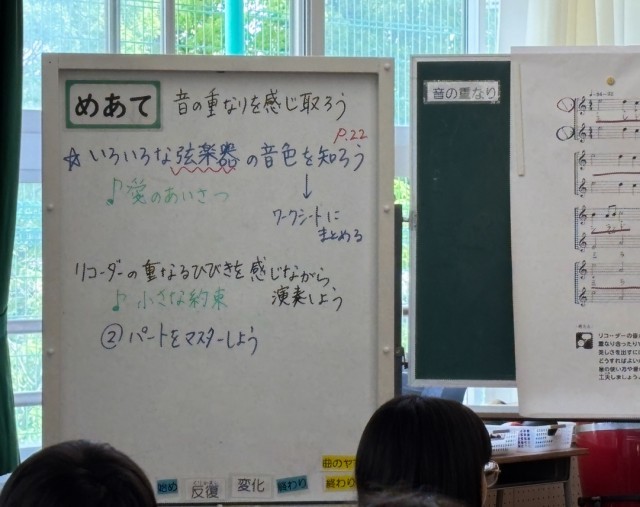 めあて 音の重なりを感じ取ろう
P.22
☆いろいろな弦楽器の音色を知ろう
♪愛のあいさつ
↓
ワークシートに
まとめる
リコーダーの重なるひびきを感じながら、
♪小さな約束 演奏しよう
②パートをマスターしよう
始め 反復 変化 終わり 終わり
曲のヤマ
音の重なり
リコーダーの音
重なり合ったり
美しさを出すに
どうすればよい
息の使い方や音
工夫しましょう